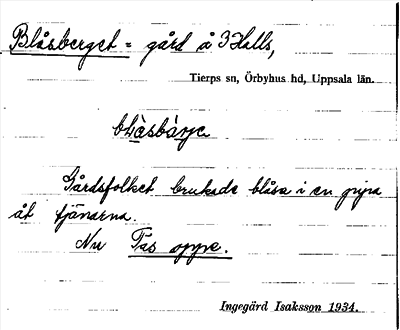 Blåsberget = gård å 3 Halls,
Tierps sn, Örbyhus hd, Uppsala län.
blàsbárje
Gårdsfolket brukade blåsa i en pipa
åt tjänarna.
Nu Tas oppe.
Ingegärd Isaksson 1934.